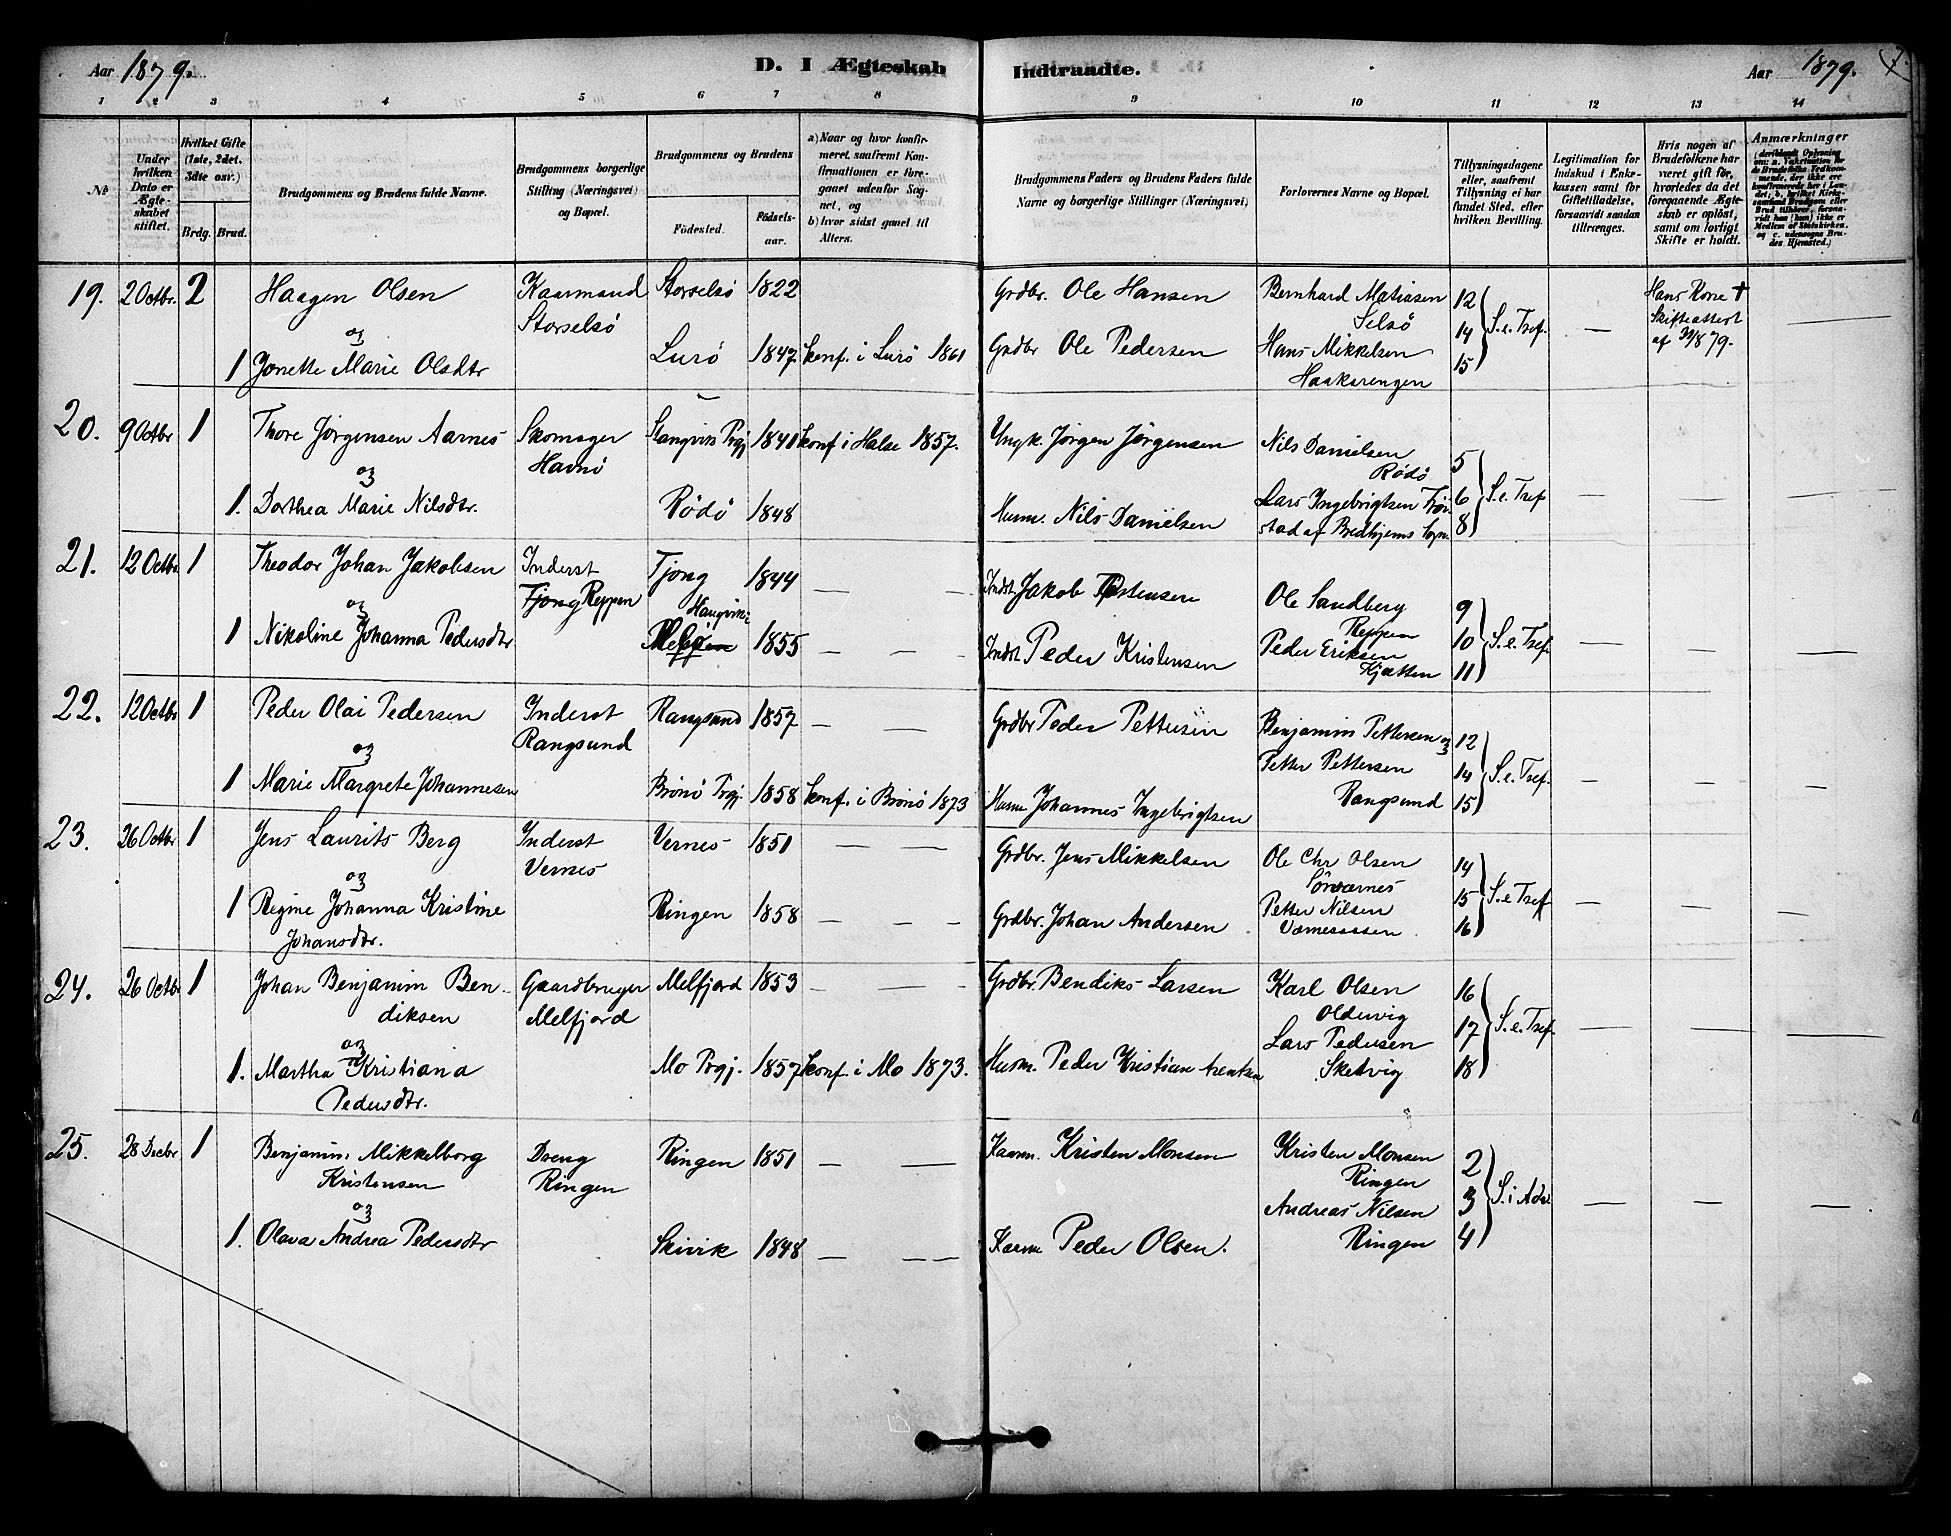 Aar 1879. D. I Ægteskab Indtraadte. Aar 1879. 7.
1 2 3 4 5 6 7 8 9 10 11 12 13 14
No
Under hvilken Dato er Ægteskabet stiftet.
Hvilket Gifte (1ste, 2det, 3die osv.)
Brdg. Brud.
Brudgommens og Brudens fulde Navne.
Brudgommens borgerlige Stilling (Næringsvei) og Bopæl.
Brudgommens og Brudens
Fødested. Fødselsaar.
a) Naar og hvor konfirmeret, saafremt Konfirmationen er foregaaet udenfor Sognet, og
b) hvor sidst gaaet til Alters.
Brudgommens Faders og Brudens Faders fulde Navne og borgerlige Stillinger (Næringsvei)
Forlovernes Navne og Bopæl.
Tillysningsdagene eller, saafremt Tillysning ei har fundet Sted, efter hvilken Bevilling.
Legitimation for Indskud i Enkekassen samt for Giftetilladelse, forsaavidt saadan tiltrænges.
Hvis nogen af Brudefolkene har været gift før, hvorledes da det foregaaende Ægteskab er opløst, samt om lovligt Skifte er holdt.
Anmærkninger
19. 2 Octbr. 2 Haagen Olsen Kaarmand Storselsö 1822 Grdbr. Ole Hansen Bernhard Matiasen 12 Hans Kone †
Storselsö Selsö 14 S. e. Tref. — Skifteattest
og Hans Mikkelsen 15 af 79.
1 Jonette Marie Olsdtr Lurö 1847 konf. i Lurö 1861 Grdbr Ole Pedersen
20. 9 Octbr 1 Thore Jörgensen Aarnes Skomager Stangvik Prgj 1841 konf i Halse 1857. Ungk. Jörgen Jörgensen Nils Danielsen
Havnö Rödö 5
og 6 S. e. Tref — — —
1. Dorthea Marie Nilsdtr. Rödö 1848 Husm. Nils Danielsen Lars Ingebrigtsen 8
21. 12 Octbr 1 Theodor Johan Jakobsen Inderst Tjong 1844 — — Indst Jakob Ole Sandberg 9
Tjong Reppen Reppen 10 S. e. Tref. — — —
og Peder Eriksen 11
1 Nikoline Johanna Pedersdtr 1855 — — — Indst Peder Kristensen Kjætten
22. 12 Octbr 1 Peder Olai Pedersen Inderst Rangsund 1857 — — Grdbr Peder Pettersen Benjamin Pettersen og 12
Rangsund Petter Pettersen 14 S. e. Tref. — — —
og Rangsund 15
1 Marie Margrete Johannesen Brönö Prgj. 1858 konf. i Brönö 1873 Husm Johannes Ingebrigtsen
23. 26 Octbr 1 Jens Laurits Berg Inderst Vernes 1851 — — Grdbr. Jens Mikkelsen Ole Chr Olsen 14
Vernes Sörværnes 15 S. e Tref — — —
og Petter Nilsen 16
1 Regine Johanna Kristine Ringen 1858 — — — Grdbr. Johan Andersen
Johansdtr.
24. 26 Octbr 1 Johan Benjamin Ben- Gaardbruger Melfjord 1853 — — — Grdbr. Bendiks Larsen Karl Olsen 16
diksen Melfjord Oldervig 17 S. e. Tref. — — —
og Lars Pedersen 18
1. Martha Kristiana Mo Prgj. 1857 konf. i Mo 1873. Husm. Peder Kristian Arentsen
Pedersdtr.
25. 28 Decbr 1 Benjamin Mikkelborg Dreng Ringen 1851 — — Kaarm. Kristen Monsen Kristen Monsen 2
Kristensen Ringen Ringen 3 S. i Adv — — —
og Andreas Nilsen 4
1. Olava Andrea Pedersdtr Skivik 1848 — — — Kaarm Peder Olsen. Ringen